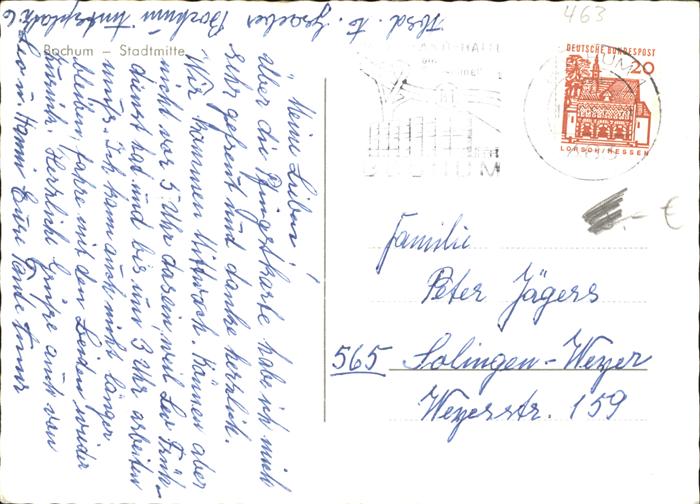 463
Absd. E. Bochum
Bochum – Stadtmitte
Meine Lieben!
Über die Pfingstkarte hab ich mich
sehr gefreut und danke herzlich.
Wir kommen Mittwoch. Können aber
nicht vor 5 Uhr da sein weil Leo Früh-
dienst hat und bis um 3 Uhr arbeiten
muß. Ich kann auch nicht länger
bleiben, fahre mit den Beiden wieder
zurück. Herzliche Grüße auch von
Leo u. Hanni Eure Tante Änne
DEUTSCHE BUNDESPOST
20
LORSCH/HESSEN
BOCHUM
€
Familie
Peter Jägers
565 Solingen-Weyer
Weyerstr. 159